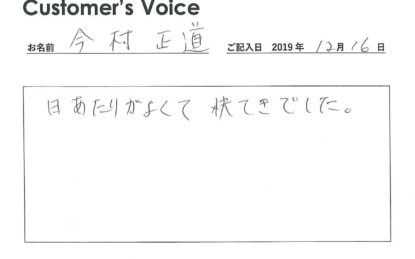 Customer's Voice
お名前 今村正道 ご記入日 2019年 12月16日
日あたりがよくて 快てきでした。